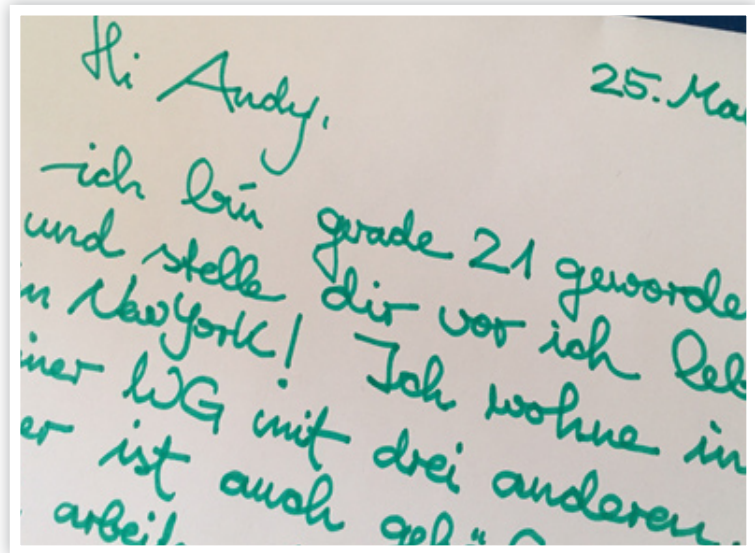 Hi Andy,
25. Ma
ich bin gerade 21 geworde
und stelle dir vor ich leb
in New York! Ich wohne in
iner WG mit drei anderen
er ist auch
arbeit